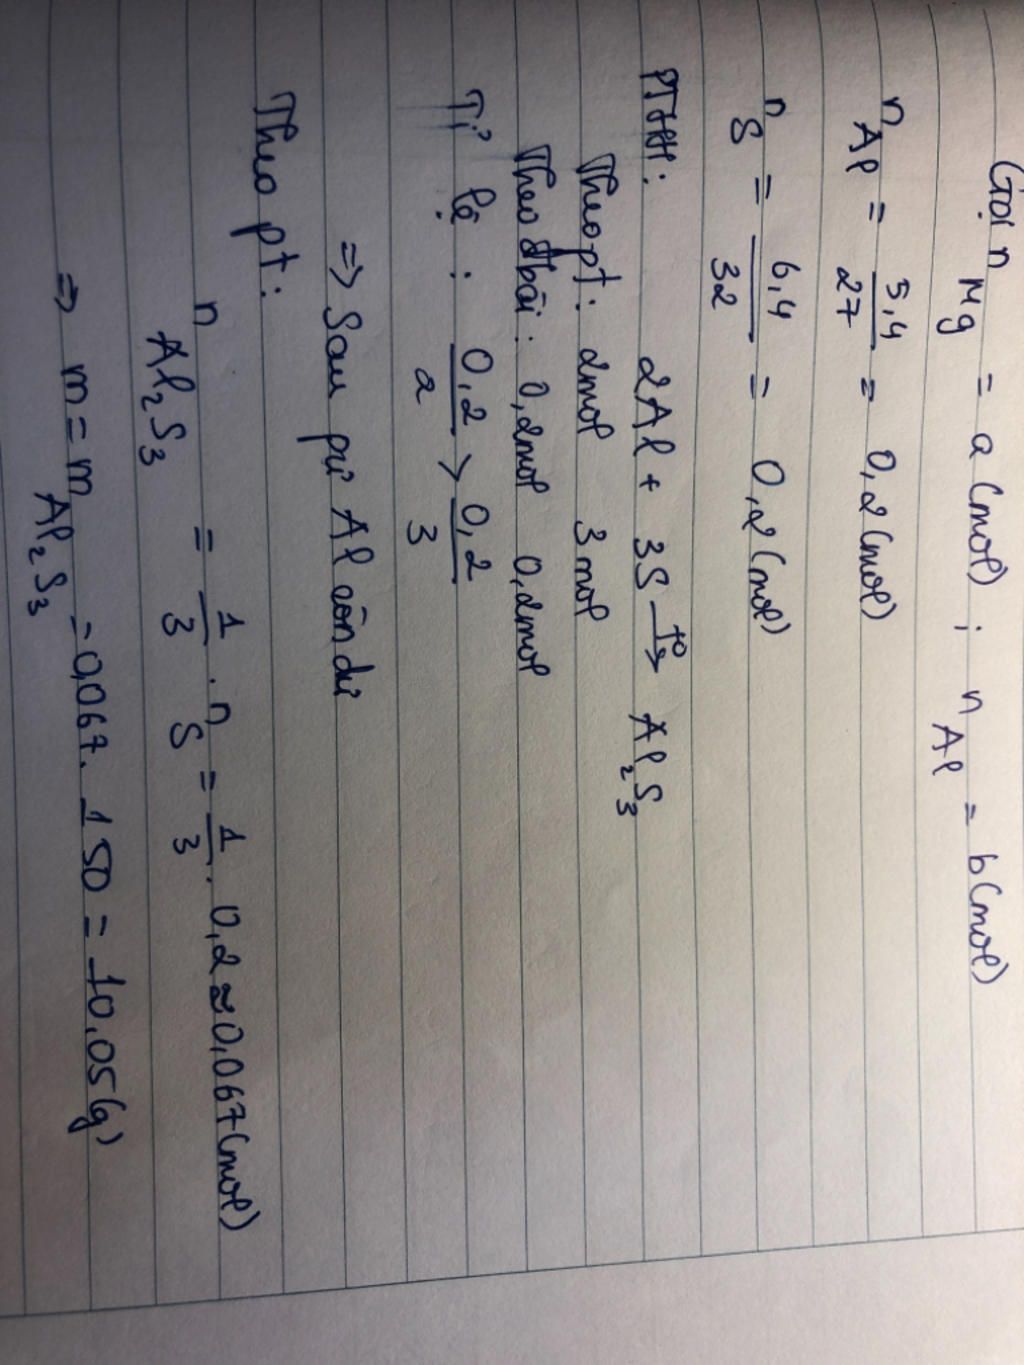 Gọi n Mg = a (mol) ; n Al = b (mol)
n Al = 5,4/27 = 0,2 (mol)
n S = 6,4/32 = 0,2 (mol)
PTHH: 2Al + 3S →t° Al₂S₃
Theo pt: 2mol 3mol
Theo đbài: 0,2mol 0,2mol
Tỉ lệ: 0,2/2 > 0,2/3
=> Sau pư Al còn dư
Theo pt:
n Al₂S₃ = 1/3 . n S = 1/3 . 0,2 ≈ 0,067 (mol)
=> m = m Al₂S₃ = 0,067. 150 = 10,05 (g)